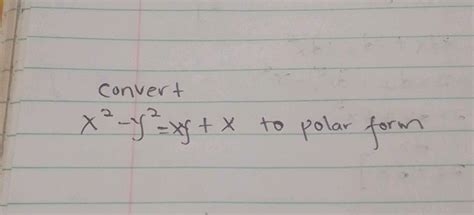 convert
x² - y² = xy + x to polar form